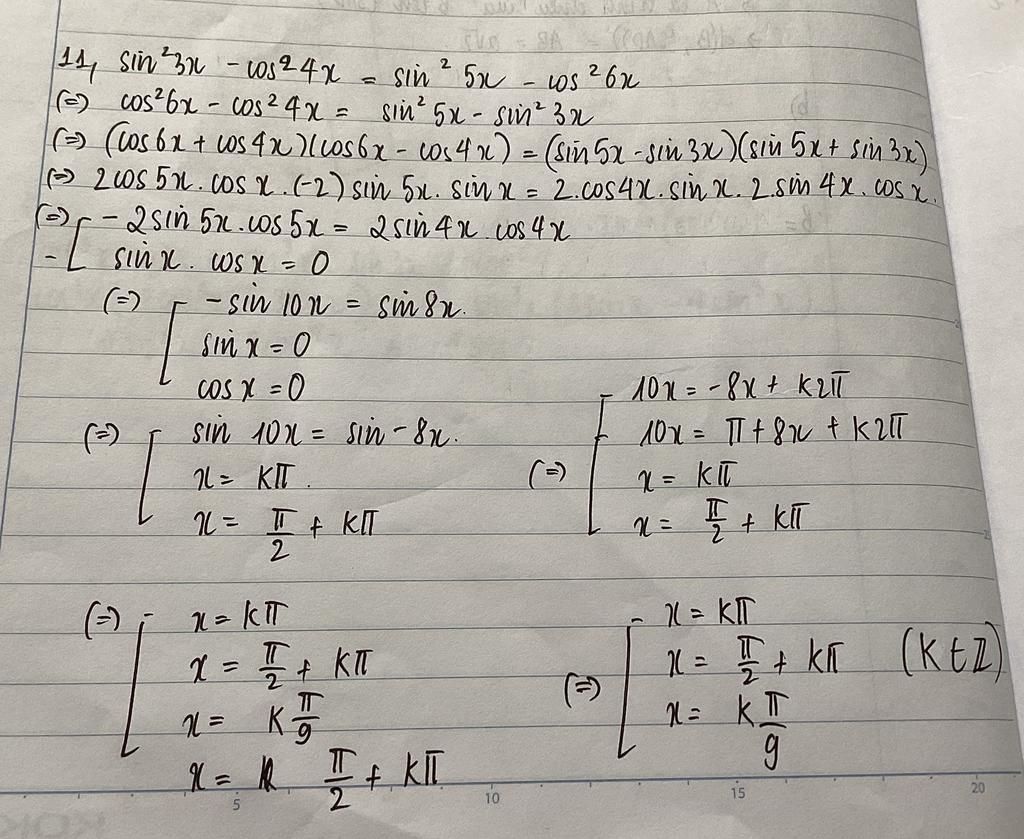 11, sin²3x - cos²4x = sin²5x - cos²6x
(=) cos²6x - cos²4x = sin²5x - sin²3x
(=) (cos6x + cos4x)(cos6x - cos4x) = (sin5x - sin3x)(sin5x + sin3x)
(=) 2cos5x.cosx.(-2)sin5x.sinx = 2.cos4x.sinx.2.sin4x.cosx.
(=) [ -2sin5x.cos5x = 2sin4x.cos4x
- [ sinx.cosx = 0
(=) [ -sin10x = sin8x.
sinx = 0
cosx = 0
(=) [ sin 10x = sin-8x.
x = kπ.
x = π/2 + kπ
(=) [ 10x = -8x + k2π
10x = π + 8x + k2π
x = kπ
x = π/2 + kπ
(=) [ x = kπ
x = π/2 + kπ
x = k π/9
x = π/2 + kπ
(=) [ x = kπ
x = π/2 + kπ (k ∈ Z)
x = k π/9
5 10 15 20